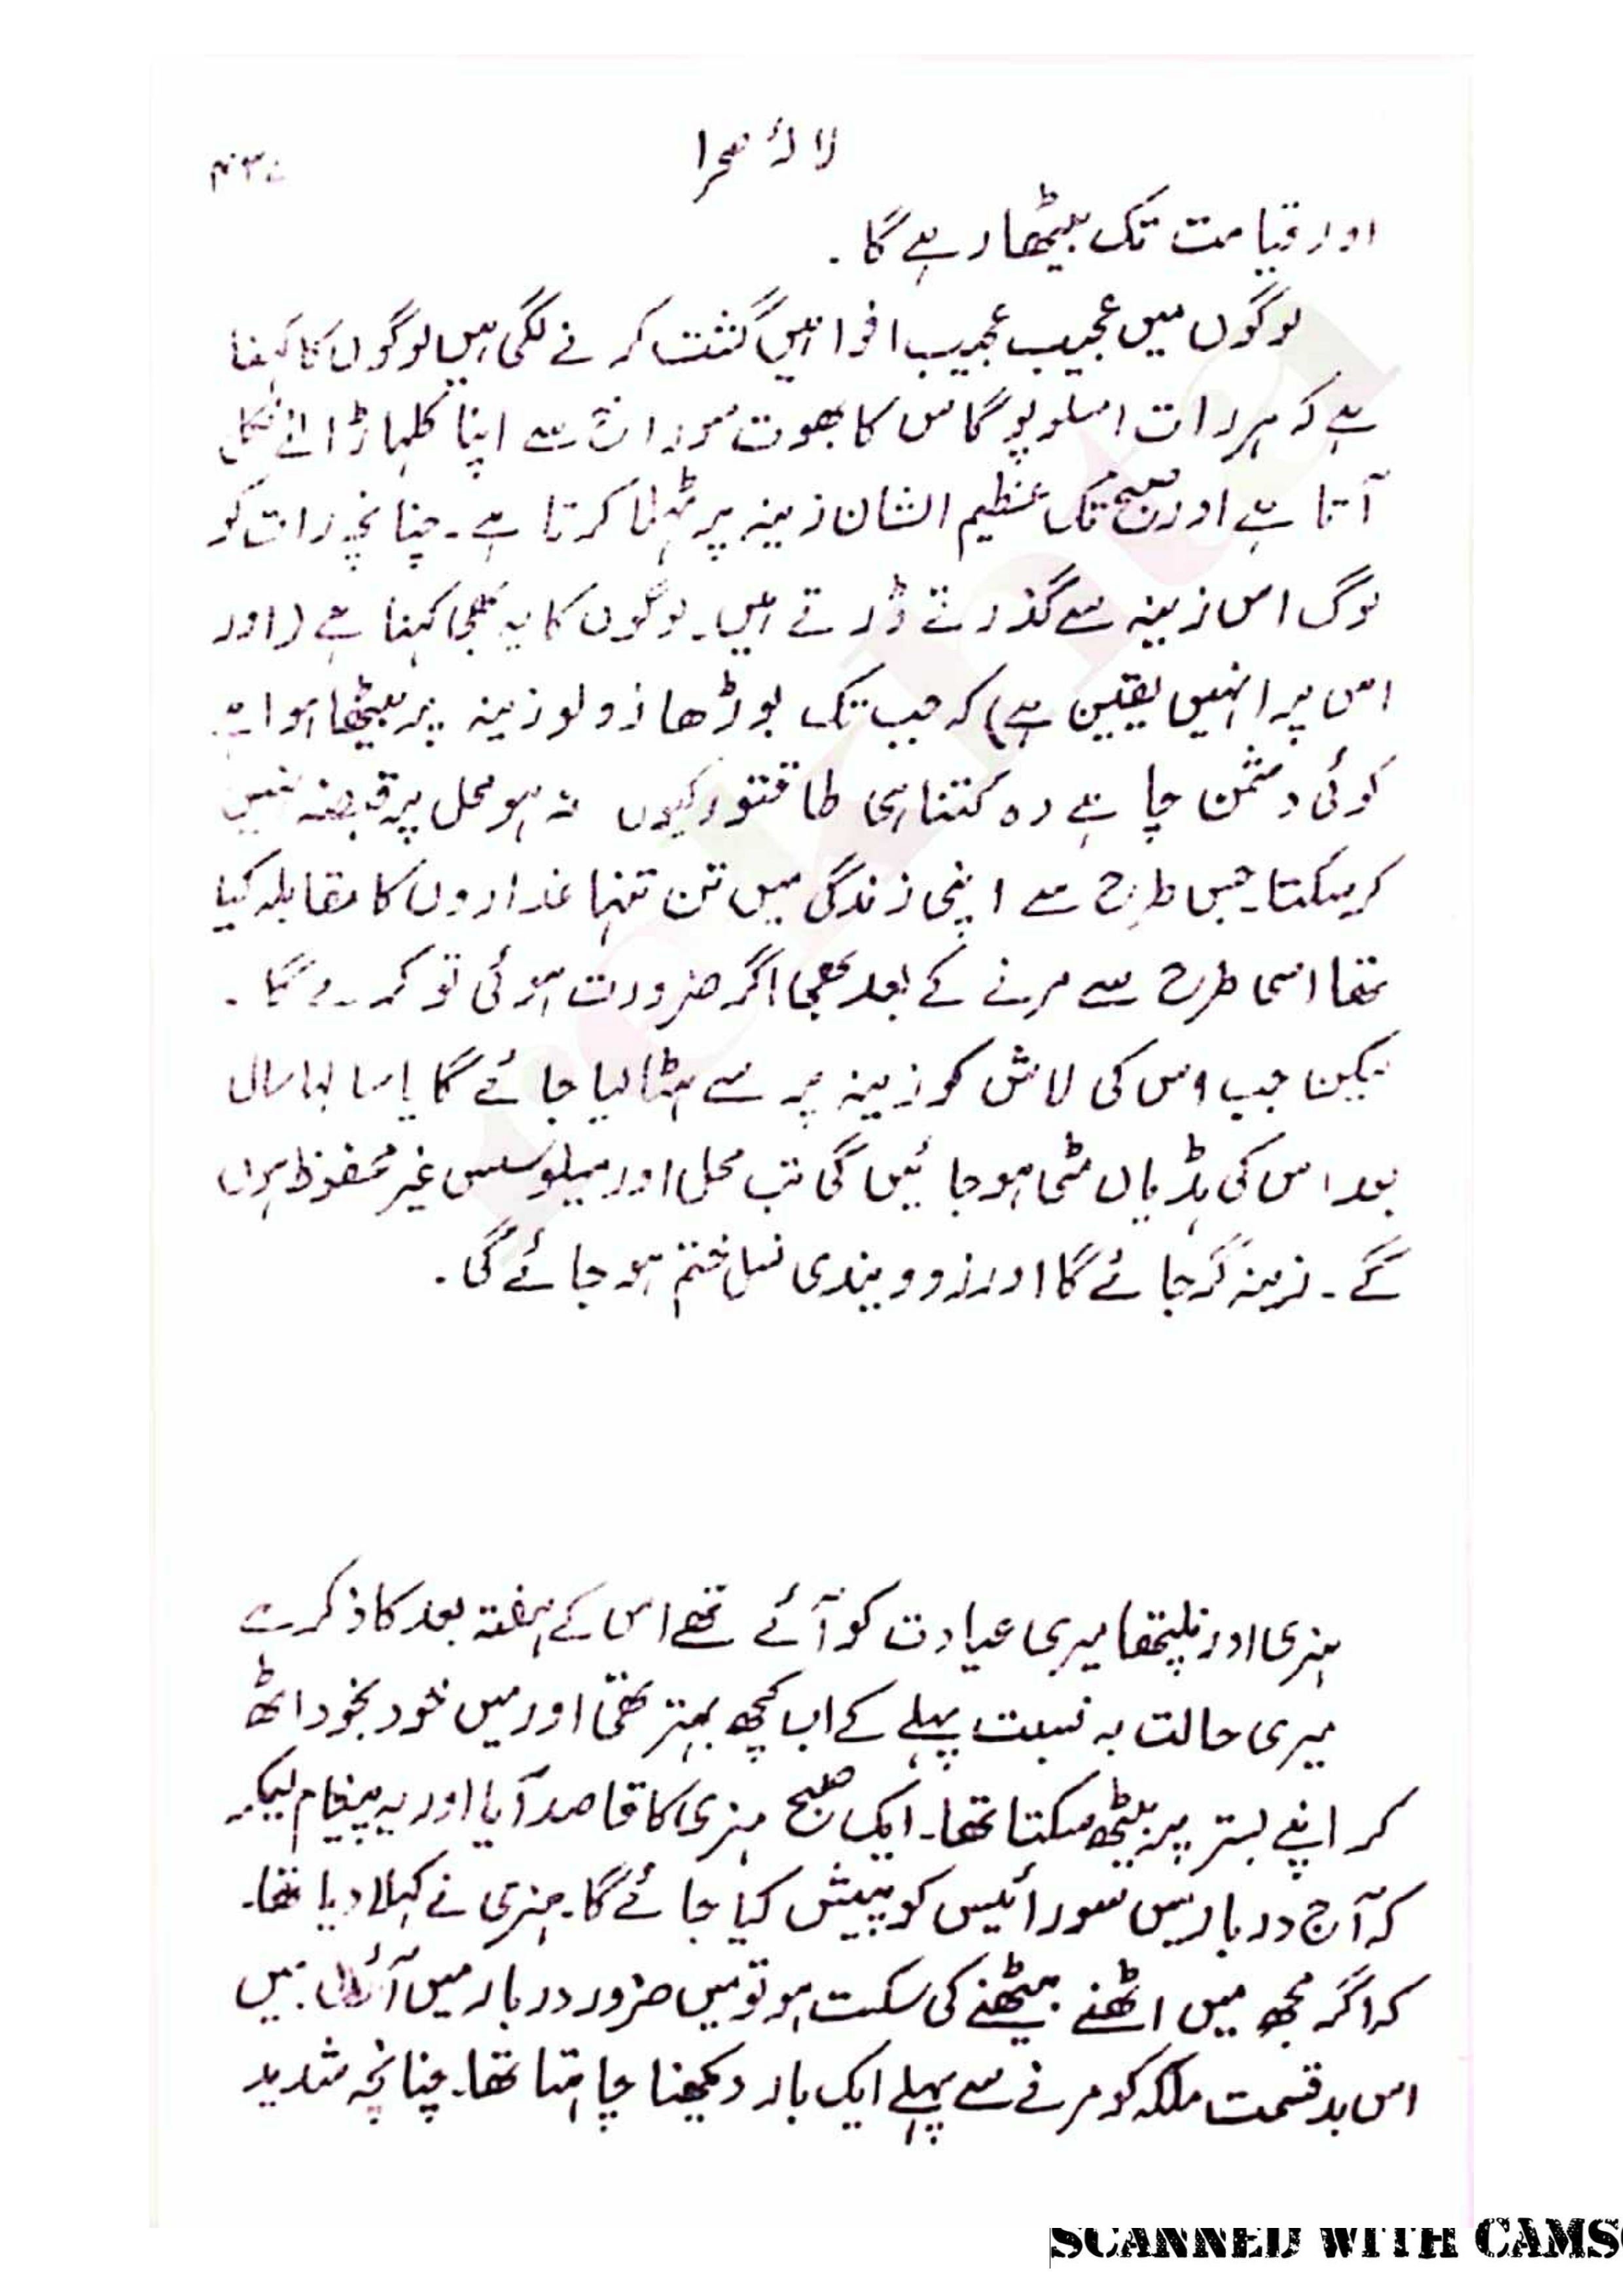 لالۂ صحرا
اور قیامت تک بیٹھا رہے گا.
لوگوں میں عجیب عجیب افواہیں گشت کرنے لگی ہیں لوگوں کا کہنا
ہے کہ ہر رات امسلوپوگاس کا بھوت سوراخ سے اپنا کلہاڑا لئے نکل
آتا ہے اور صبح تک عظیم الشان زینہ پر ٹہلا کرتا ہے۔ چنانچہ رات کو
لوگ اس زینہ سے گذرتے ڈرتے ہیں۔ لوگوں کا یہ بھی کہنا ہے (اور
اس پر انہیں یقین ہے) کہ جب تک بوڑھا زولو زینہ پر بیٹھا ہوا ہے
کوئی دشمن چاہے وہ کتنا ہی طاقتور کیوں نہ ہو محل پر قبضہ نہیں
کرسکتا۔ جس طرح سے اپنی زندگی میں تن تنہا غداروں کا مقابلہ کیا
تھا اسی طرح سے مرنے کے بعد بھی اگر ضرورت ہوئی تو کرے گا.
لیکن جب اس کی لاش کو زینہ پر سے ہٹا لیا جائے گا یا سالہا سال
بعد اس کی ہڈیاں مٹی ہوجائیں گی تب محل اور میلوسس غیر محفوظ ہوں
گے۔ زینہ گرجائے گا اور زوویندی نسل ختم ہو جائے گی.
ہنری اور نلپتھا میری عیادت کو آئے تھے اس کے ہفتہ بعد کا ذکر ہے
میری حالت بہ نسبت پہلے کے اب کچھ بہتر تھی اور میں خود بخود اٹھ
کر اپنے بستر پر بیٹھ سکتا تھا۔ ایک صبح ہنری کا قاصد آیا اور یہ پیغام لیکر
کہ آج دربار میں سورائیس کو پیش کیا جائے گا۔ ہنری نے کہلا دیا تھا۔
کہ اگر مجھ میں اٹھنے بیٹھنے کی سکت ہو تو میں ضرور دربار میں آؤں. میں
اس بدقسمت ملکہ کو مرنے سے پہلے ایک بار دیکھنا چاہتا تھا۔ چنانچہ شدید
SCANNED WITH CAMS